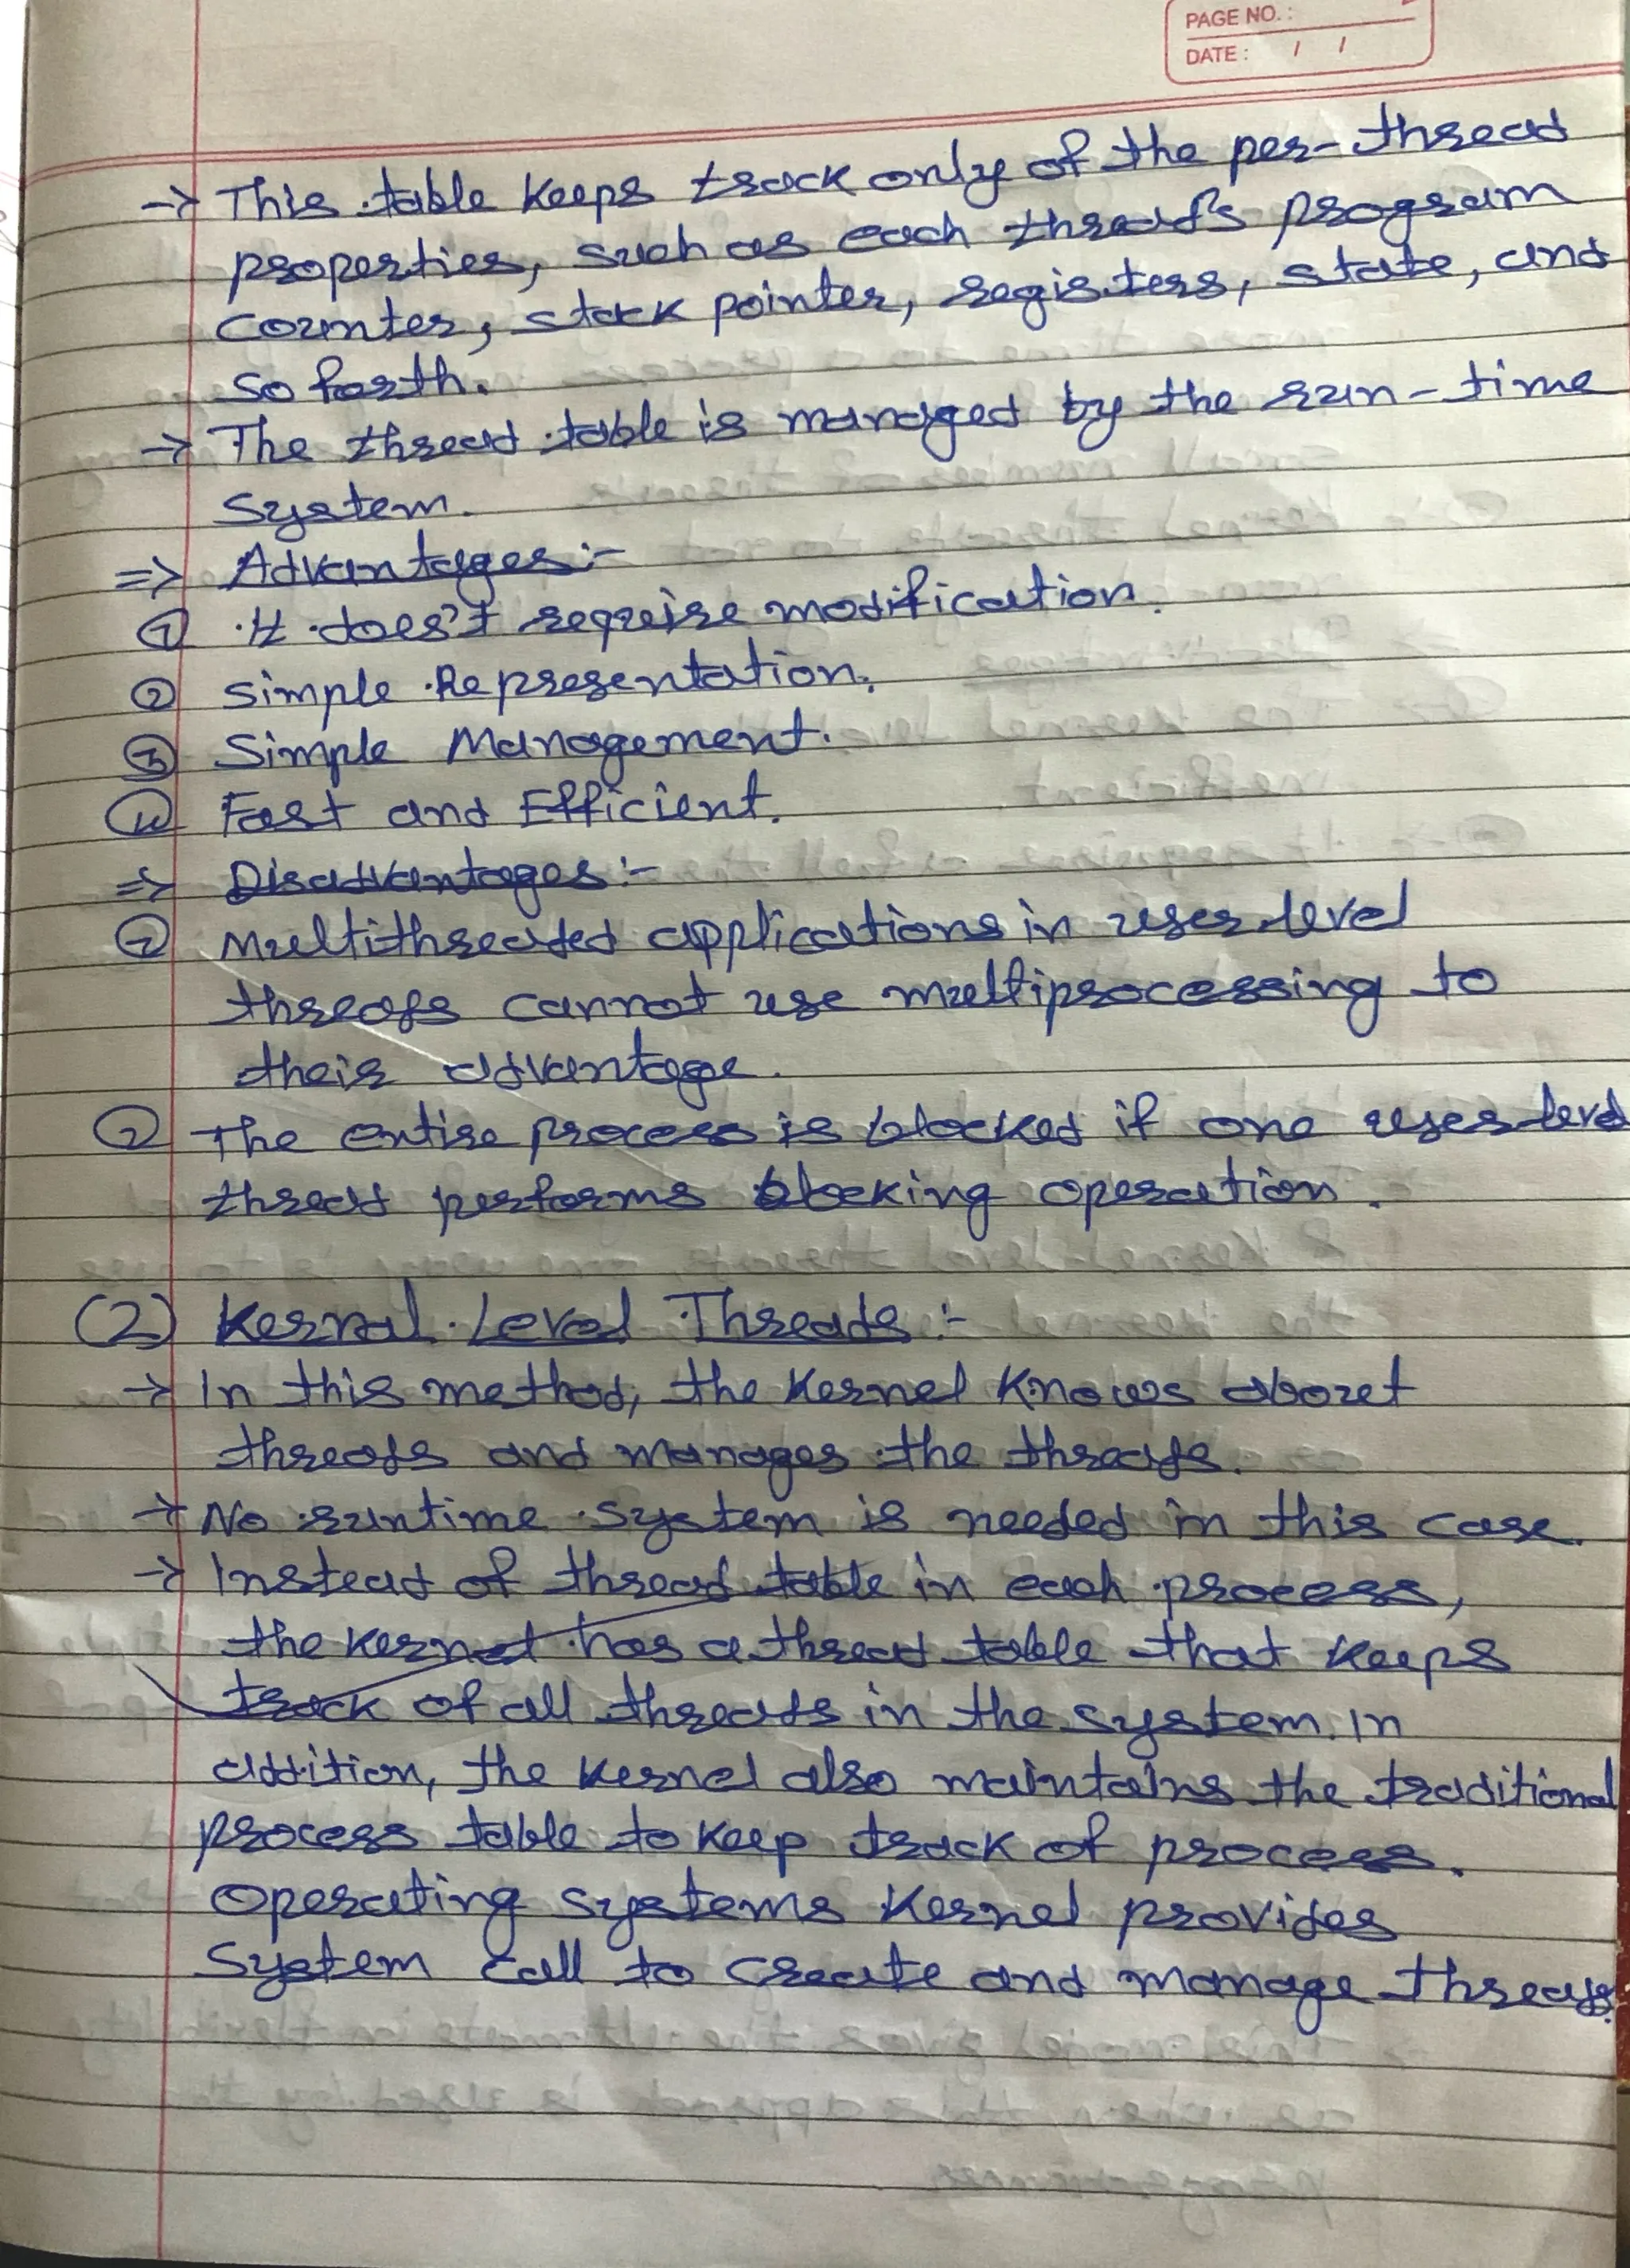 PAGE NO.:
DATE: / /
→ This table keeps track only of the per-thread
properties, such as each thread's program
counter, stack pointer, registers, state, and
so forth.
→ The thread table is managed by the run-time
system.
⇒ Advantages:-
① It does't require modification.
② Simple Representation.
③ Simple Management.
④ Fast and Efficient.
⇒ Disadvantages:-
① Multithreaded applications in user-level
threads cannot use multiprocessing to
their advantage.
② The entire process is blocked if one user-level
thread performs blocking operation.
(2) Kernal Level Threads:-
→ In this method, the kernel knows about
threads and manages the threads.
→ No runtime system is needed in this case.
→ Instead of thread table in each process,
the kernel has a thread table that keeps
track of all threads in the system. In
addition, the kernel also maintains the traditional
process table to keep track of process.
Operating systems kernel provides
system call to create and manage threads.